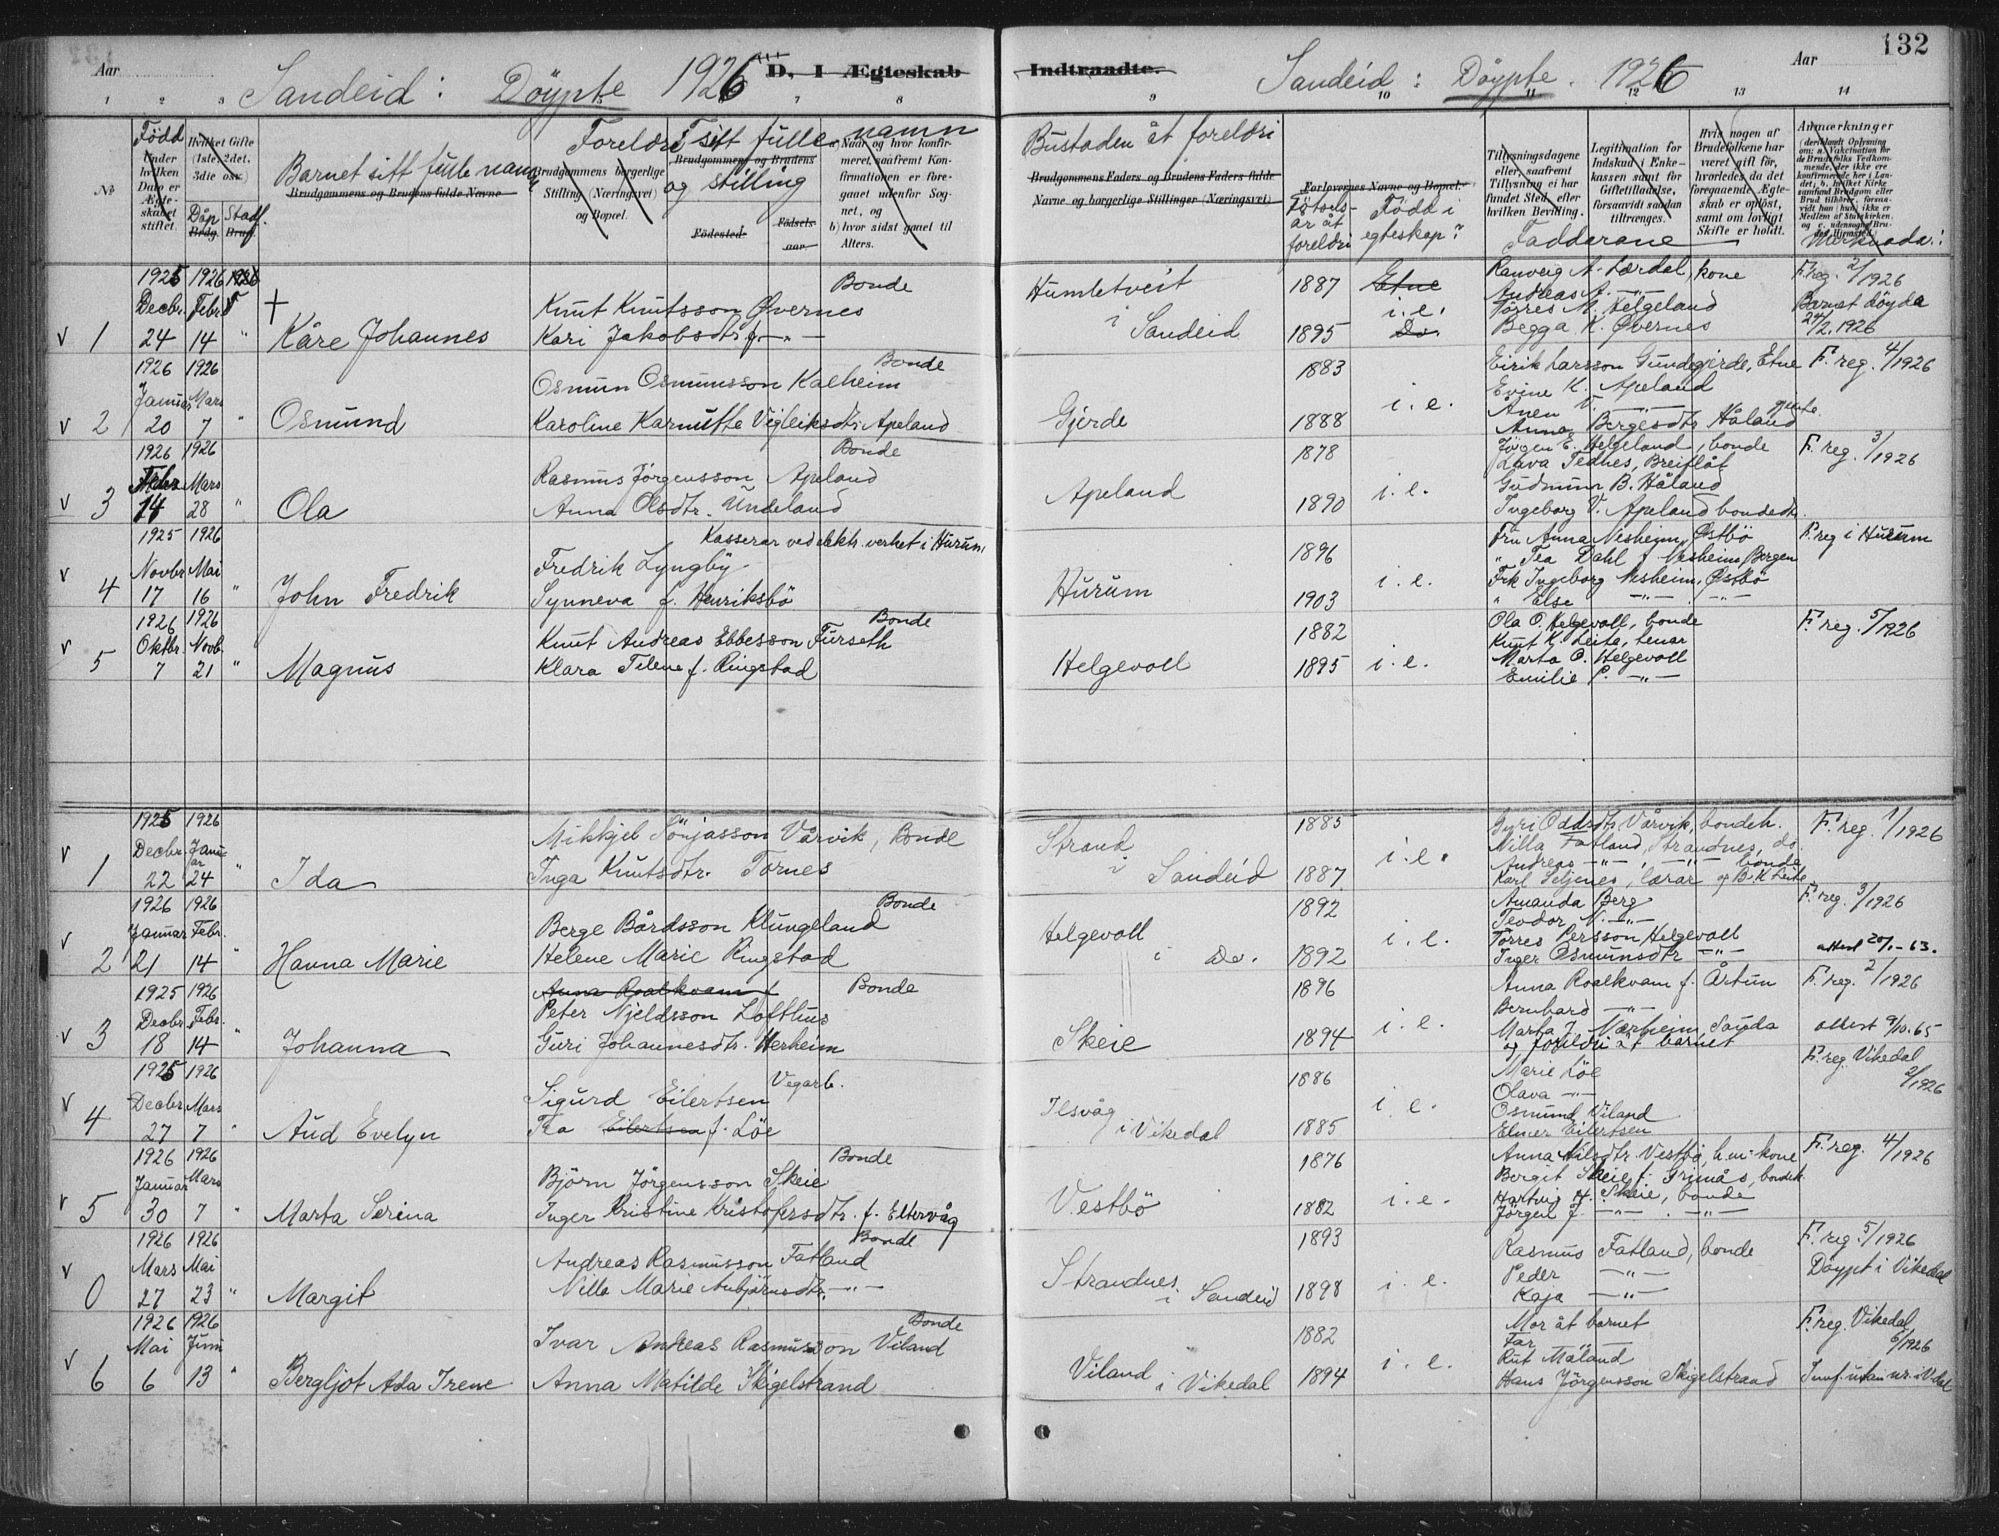 132
Aar
Sandeid: Döypte 1926
D. I Ægteskab
Indtraadte.
Sandeid: Döypte. 1926
Aar
1 2 3 7 8 9 10 11 12 13 14
No
Född
Under hvilken Dato er Ægteskabet stiftet.
Hvilket Gifte (1ste, 2det, 3die osv.)
Döp
Brdg.
Stad
Brud.
Barnet sitt fulle namn
Brudgommens og Brudens fulde Navne
Foreldri sitt fulle namn og stilling
Brudgommens borgerlige Stilling (Næringsvei) og Bopæl.
Brudgommens og Brudens
Födested.
Födselsaar.
a) Naar og hvor konfirmeret, saafremt Konfirmationen er foregaaet udenfor Sognet, og
b) hvor sidst gaaet til Alters.
Bustaden åt foreldri
Brudgommens Faders og Brudens Faders fulde Navne og borgerlige Stillinger (Næringsvei)
Forlovernes Navne og Bopæl.
Födselsår åt foreldri
Född i egteskap?
Tillysningsdagene eller, saafremt Tillysning ei har fundet Sted, efter hvilken Bevilling.
Legitimation for Indskud i Enkekassen samt for Giftetilladelse, forsaavidt saadan tiltrænges.
Fadderane
Hvis nogen af Brudefolkene har været gift før, hvorledes da det foregaaende Ægteskab er opløst, samt om lovligt Skifte er holdt.
Anmærkninger
Merknadar:
v 1
1925 Decbr. 24
1926 Febr. 14
Kåre Johannes
Bonde
Knut Knutsson Øvernes
Kari Jakobsdtr. f. —"—
Humletveit i Sandeid
1887
1895
Etne
i. e.
Do.
Ranveig A. Lærdal, kone
Andreas A. —"—
Torres M. Helgeland
Begga K. Øvernes
F. reg. 2/1926
Barnet döyda
24/2. 1926
v 2
1926 Januar 20
1926 Mars 7
Osmund
Bonde
Osmun Osmunsson Kalheim
Karoline Karnutte Vigleiksdtr. Apeland
Gjerde
1883
1888
i. e.
Eirik Larsson Gundegjerde, Etne
Evine K. Apeland
Ånen V. —"—
Anna Bergesdtr. Håland gjente
F. reg. 4/1926
v 3
1926 Febr 14
1926 Mars 28
Ola
Bonde
Rasmus Jörgensson Apeland
Anna Olsdtr. Undeland
Apeland
1878
1890
i. e.
Jörgen E. Helgeland, bonde
Lava Tednes, Breiflåt
Gudmun B. Håland
Ingeborg V. Apeland bondedtr.
F. reg. 3/1926
v 4
1925 Novbr 17
1926 Mai 16
John Fredrik
Kasserar ved elektr. verket i Hurum
Fredrik Lyngby
Synneva f. Henriksbö
Hurum
1896
1903
i. e.
Fru Anna Nesheim, Østbö
" Tea Dahl f. Nesheim, Bergen
Frk Ingeborg Nesheim, Østbö
" Else —"— —"—
F. reg i Hurum
v 5
1926 Oktbr. 7
1926 Novb. 21
Magnus
Bonde
Knut Andreas Ebbesson Furseth
Klara Tilene f. Ringstad
Helgevoll
1882
1895
i. e.
Ola O. Helgevoll, bonde
Knut K. Leite, tenar
Marta O. Helgevoll
Emilie P. —"—
F. reg. 5/1926
v 1
1925 Decbr. 22
1926 Januar 24
Ida
Mikkjel Sönjasson Vårvik, Bonde
Inga Knutsdtr. Tornes
Strand i Sandeid
1885
1887
i. e.
Gyri Oddsdtr. Vårvik, bondek.
Nilla Fatland, Strandnes, do.
Andreas —"— , —"— bonde
Karl Seljenes, lærar og B. K. Leite
F. reg. 1/1926
v 2
1926 Januar 21
1926 Febr. 14
Hanna Marie
Bonde
Berge Bårdsson Klungeland
Helene Marie Ringstad
Helgevoll i Do.
1892
1892
i. e.
Amanda Berg
Teodor N. —"—
Torres Persson Helgevoll
Inger Osmunsdtr —"—
F. reg. 3/1926
attest 20/1-63.
v 3
1925 Decbr. 18
1926 Febr. 14
Johanna
Anna Roalkvam f
Bonde
Peter Njeldsson Lofthus
Guri Johannesdtr. Herheim
Skeie
1896
1894
i. e.
Anna Roalkvam f. Årtun
Bernhard —"—
Marta J. Mærheim, Sauda
og foreldri åt barnet
F. reg. 2/1926
attest 9/10.65
v 4
1925 Decbr 27
1926 Mars 7
Aud Evelyn
Vegarb.
Sigurd Eilertsen
Tea Eilertsen f. Löe
Ilsvåg i Vikedal
1886
1885
i. e.
Marie Löe
Olava —"—
Osmund Viland
Elmer Eilertsen
F. reg. Vikedal
2/1926
v 5
1926 Januar 30
1926 Mars 7
Marta Serina
Bonde
Björn Jörgensson Skeie
Inger Kristine Kristofersdtr. f. Eltervåg
Vestbö
1876
1882
i. e.
Anna Nilsdtr. Vestbö, h.m. kone
Bergit Skeie f. Grimås, bondek.
Hartvig H. Skeie, bonde
Jörgen J. —"— —"—
F. reg. 4/1926
v 0
1926 Mars 27
1926 Mai 23
Margit
Bonde
Andreas Rasmusson Fatland
Nilla Marie Anbjörnsdtr. —"—
Strandnes i Sandeid
1893
1898
i. e.
Rasmus Fatland, bonde
Peder —"—
Kaja —"—
F. reg. 5/1926
Döypt i Vikedal
v 6
1926 Mai 6
1926 Juni 13
Bergljot Ada Irene
Bonde
Ivar Andreas Rasmusson Viland
Anna Matilde Skigelstrand
Viland i Vikedal
1882
1894
i. e.
Mor åt barnet
Far " "
Rut Måland
Hans Jörgensson Skigelstrand
F. reg. Vikedal
6/1926